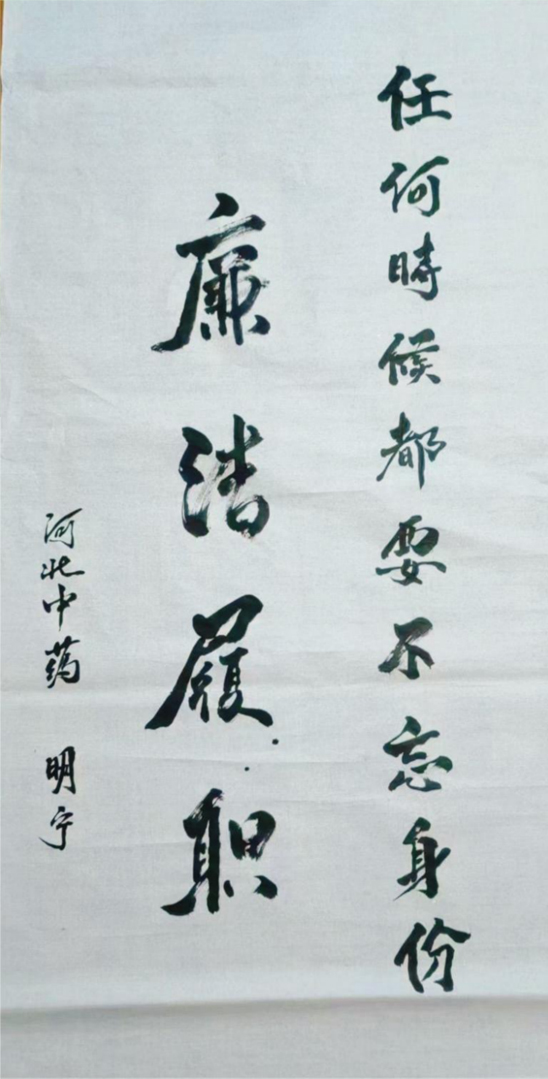 任何時候都要不忘身份
廉洁履职
河北中药 明宁